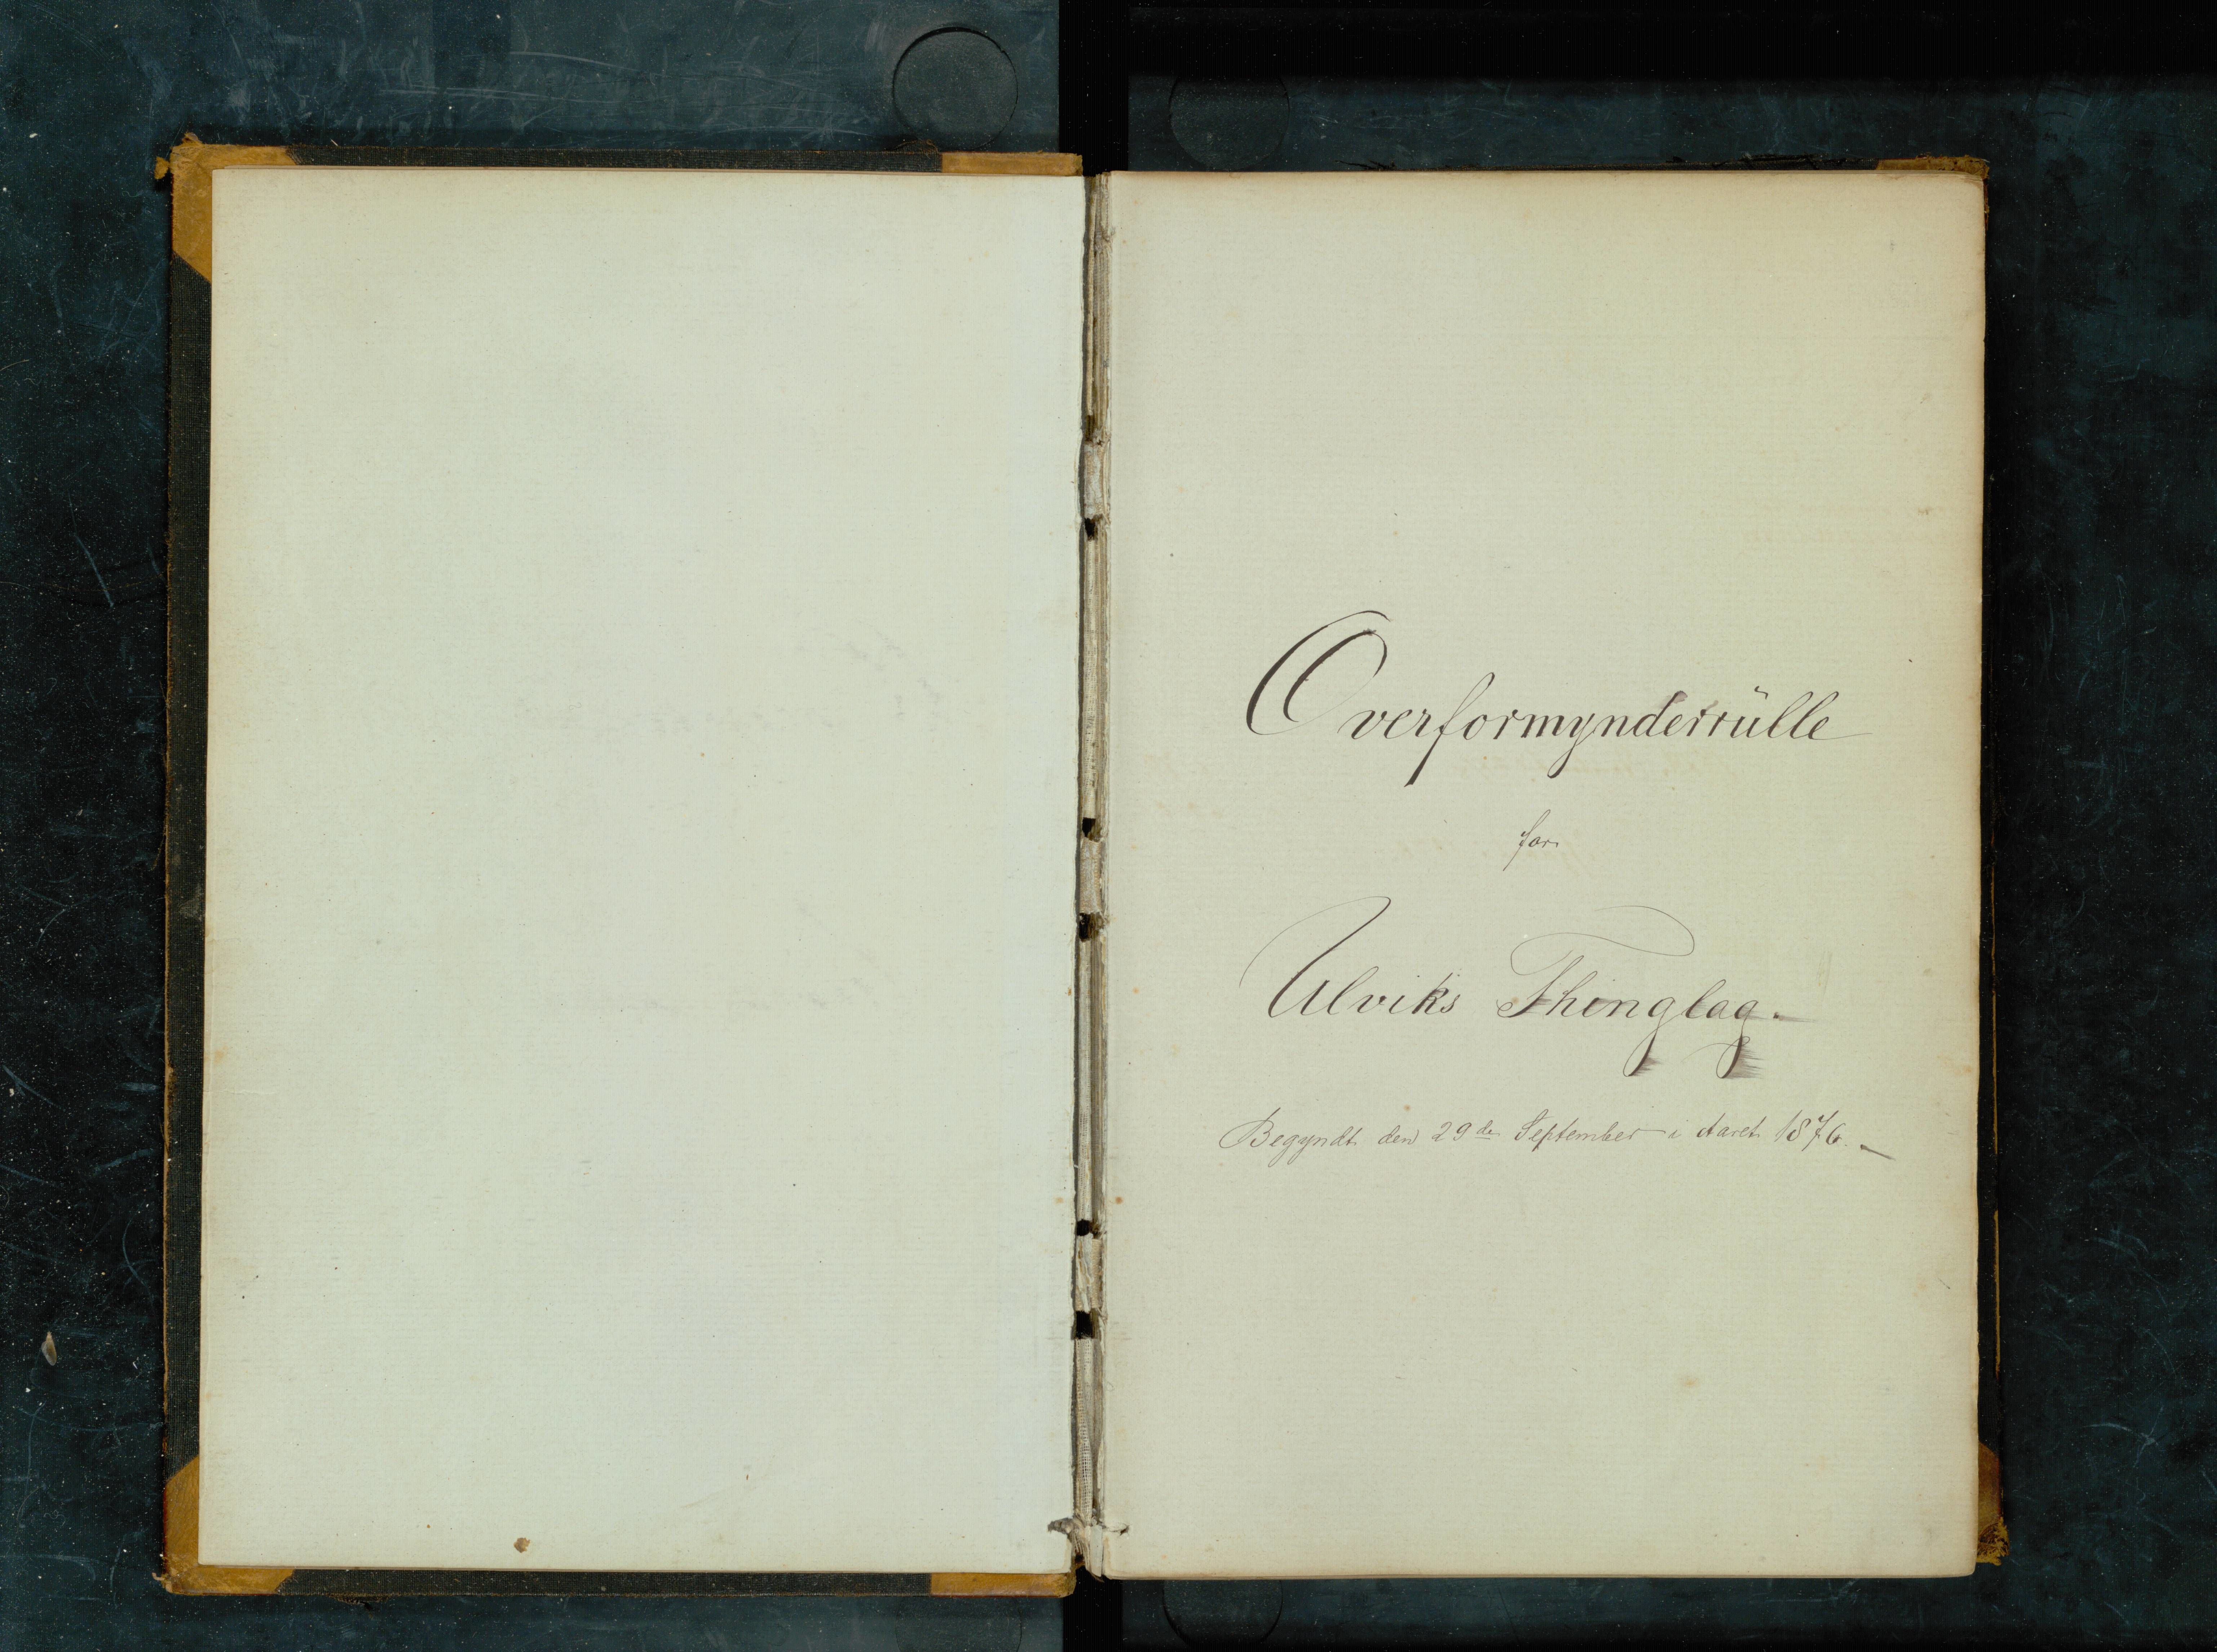 Overformynderrülle
for
Ulviks Thinglag.
Begyndt den 29de September i Aaret 1876.